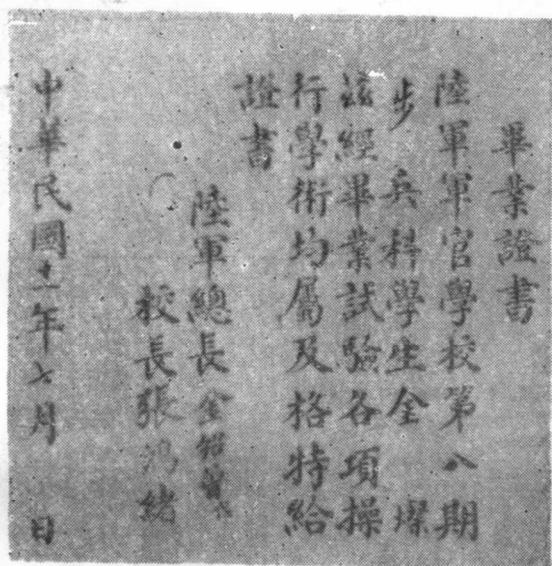 畢業證書
陸軍軍官學校第八期
步兵科學生金璨
茲經畢業試驗各項操
行學術均屬及格特給
證書
陸軍總長金紹曾
校長張鴻緒
中華民國十一年七月 日